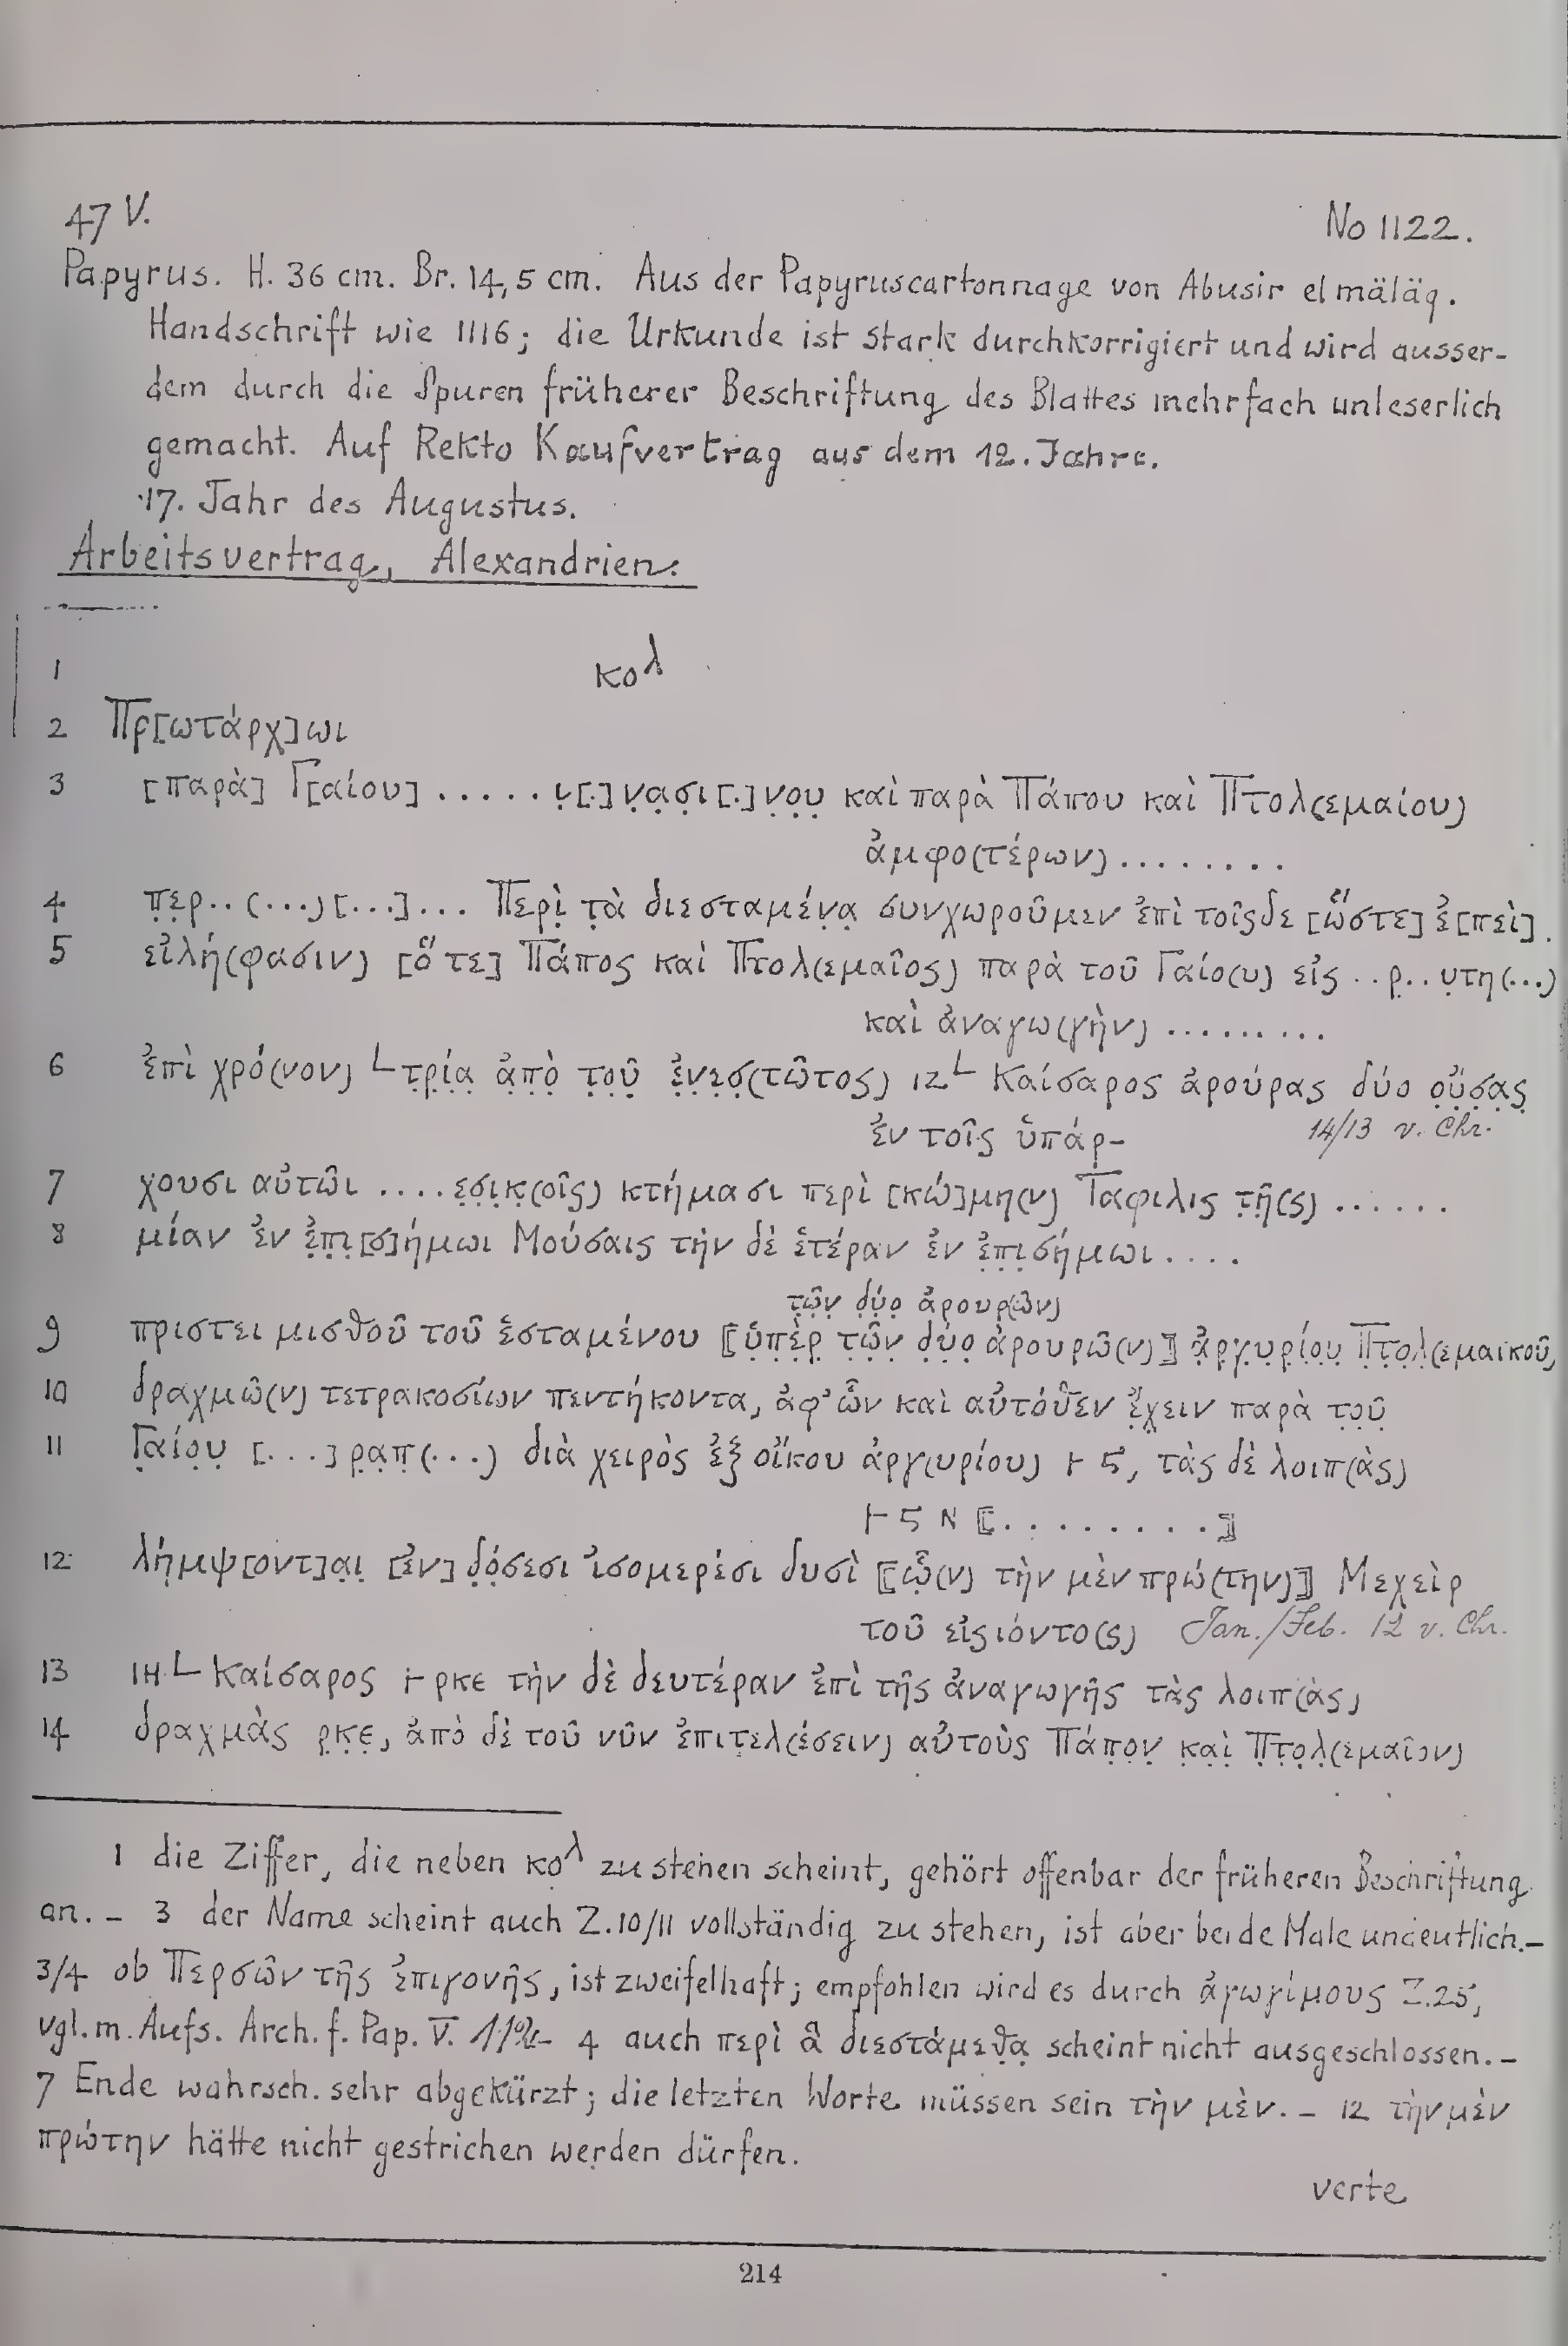 47 V.
No 1122.
Papyrus. H. 36 cm. Br. 14,5 cm. Aus der Papyruscartonnage von Abusir el mäläq.
Handschrift wie 1116; die Urkunde ist stark durchkorrigiert und wird ausser-
dem durch die Spuren früherer Beschriftung des Blattes mehrfach unleserlich
gemacht. Auf Rekto Kaufvertrag aus dem 12. Jahre.
17. Jahr des Augustus.
Arbeitsvertrag, Alexandrien.
1 κολ
2 Πρ[ωτάρχ]ωι
3 [παρὰ] Γ[αίου] ..... ι̣[.]ν̣α̣σ̣ι[.]ν̣ο̣υ̣ καὶ παρὰ Πάπου καὶ Πτολ(εμαίου)
ἀμφο(τέρων) ........
4 π̣ε̣ρ̣..(...)[...]... Περὶ̣ τ̣ὰ διεσταμέν̣α̣ συνχωροῦμεν ἐπὶ τοῖςδε [ὥστε] ἐ[πεὶ].
5 εἰλή(φασιν) [ὅ τε] Πάπος καὶ Πτολ(εμαῖος) παρὰ τοῦ Γαίο(υ) εἰς ..ρ̣..υ̣τη(...)
καὶ ἀναγω(γὴν) .........
6 ἐπὶ χρό(νον) L τ̣ρ̣ί̣α̣ ἀ̣π̣ὸ̣ τ̣ο̣ῦ̣ ἐ̣ν̣ε̣σ̣(τῶτος) ιζL Καίσαρος ἀρούρας δύο ο̣ὔ̣σ̣α̣ς̣
ἐν τοῖς ὑπάρ-
14/13 v. Chr.
7 χουσι αὐτῶι ....ε̣σ̣ι̣κ̣(οῖς) κτήμασι περὶ [κώ]μη(ν) Ταφιλις τ̣ῆ̣(ς) ......
8 μίαν ἐν ἐ̣π̣ι̣[σ]ήμωι Μούσαις τὴν δὲ ἑτέραν ἐν ἐ̣π̣ι̣σήμωι ....
τ̣ῶ̣ν̣ δ̣ύ̣ο̣ ἀρουρ(ῶν)
9 πριστει μισθοῦ τοῦ ἑσταμένου ⟦ὑ̣π̣ὲ̣ρ̣ τ̣ῶ̣ν̣ δ̣ύ̣ο̣ ἀρουρῶ(ν)⟧ ἀ̣ρ̣γ̣υ̣ρ̣ί̣ο̣υ̣ Π̣τ̣ο̣λ̣(εμαικοῦ)
10 δραχμῶ(ν) τετρακοσίων πεντήκοντα, ἀφ' ὧν καὶ αὐτόθεν ἔ̣χ̣ειν παρὰ τ̣ο̣ῦ̣
11 Γ̣α̣ί̣ο̣υ̣ [...]ρ̣α̣π̣(...) διὰ χειρὸς ἐξ οἴκου ἀργ(υρίου) ⊢ Ϛ, τὰς δὲ λοιπ(ὰς)
⊢ Ϛ Ν ⟦.........⟧
12 λήμψ[οντ]α̣ι̣ [ἐν] δ̣ό̣σεσι ἰσομερέσι δυσὶ ⟦ὧ̣(ν) τὴν μὲν πρώ(την)⟧ Μεχεὶρ
τοῦ εἰςιόντο(ς) Jan./Feb. 12 v. Chr.
13 ιηL Καίσαρος ⊢ ρκε τὴν δὲ δευτέραν ἐπὶ τῆς ἀναγωγῆς τὰς λοιπ(ὰς)
14 δραχμὰς ρ̣κ̣ε̣, ἀπὸ δὲ τοῦ νῦν ἐπιτελ(έσειν) α̣ὐτοὺς Πάπ̣ο̣ν̣ κ̣α̣ὶ̣ Π̣τ̣ο̣λ̣(εμαῖον)
1 die Ziffer, die neben κολ zu stehen scheint, gehört offenbar der früheren Beschriftung
an. – 3 der Name scheint auch Z. 10/11 vollständig zu stehen, ist aber beide Male undeutlich. –
3/4 ob Περσῶν τῆς ἐπιγονῆς, ist zweifelhaft; empfohlen wird es durch ἀγωγίμους Z. 25,
vgl. m. Aufs. Arch. f. Pap. V. – 4 auch περὶ ἃ διεστάμεθ̣α̣ scheint nicht ausgeschlossen. –
7 Ende wahrsch. sehr abgekürzt; die letzten Worte müssen sein τὴν μὲν. – 12 τὴν μὲν
πρώτην hätte nicht gestrichen werden dürfen.
verte
214